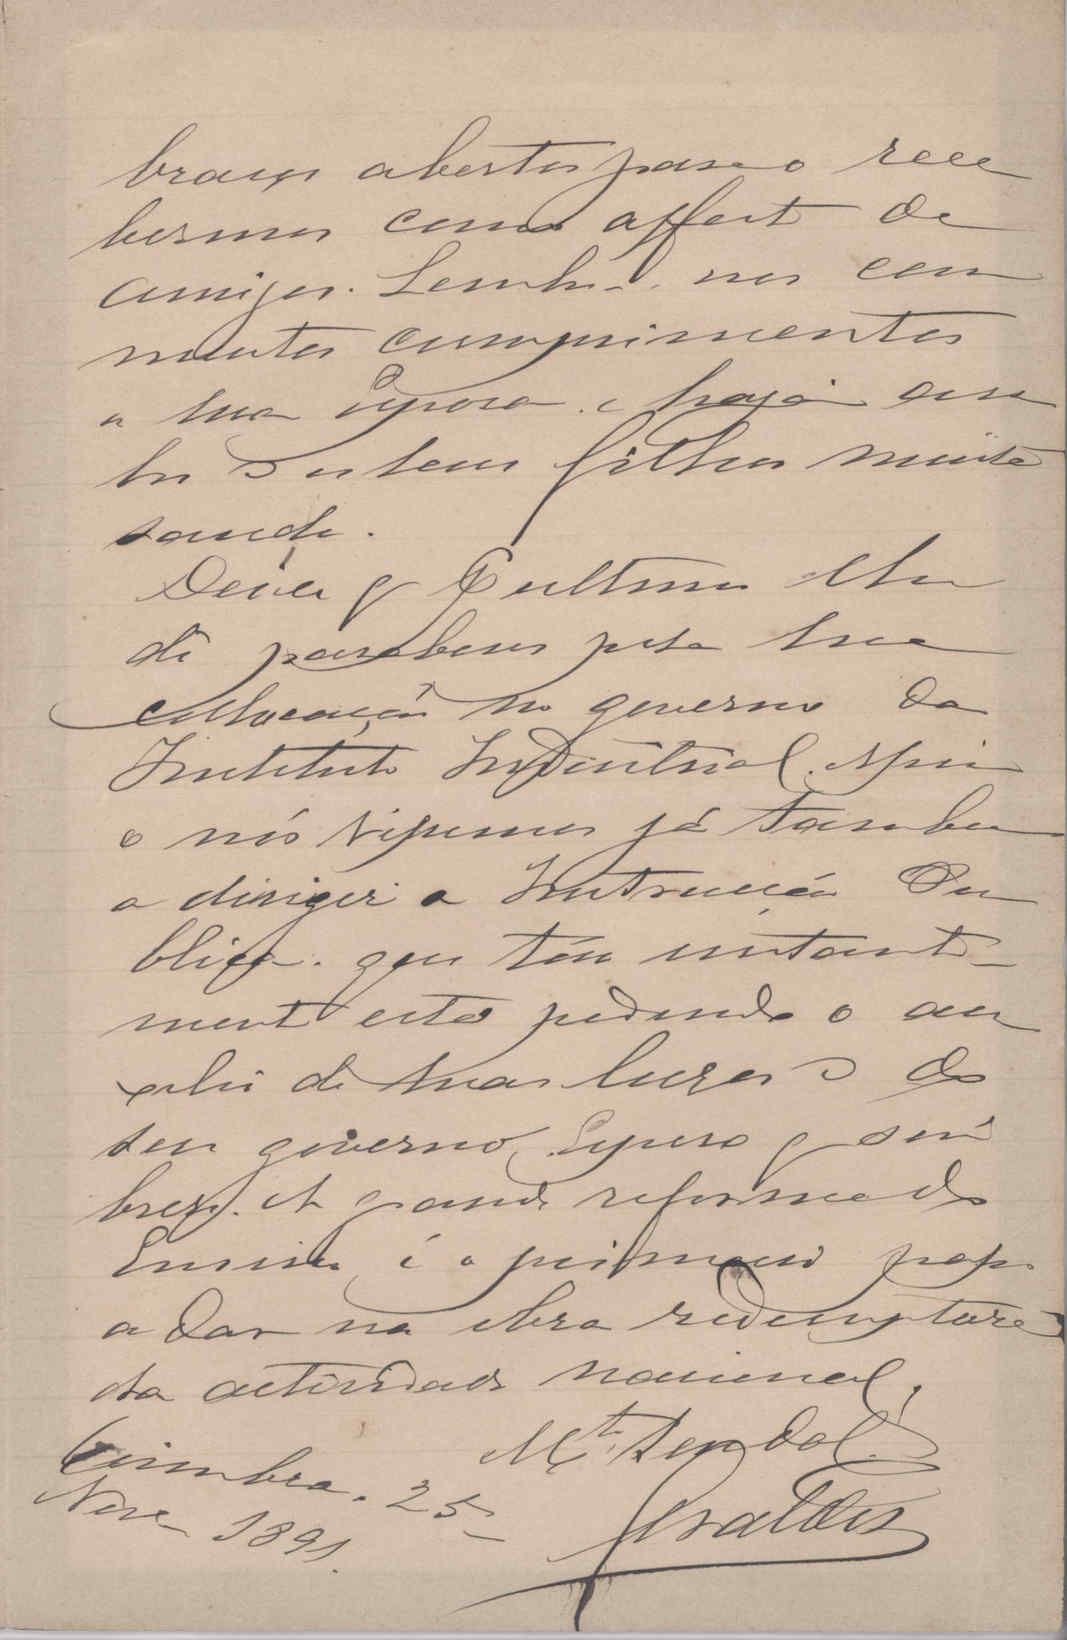 braços abertos para o rece
bermos como affect de
amigos. Lembra-nos com
muitos cumprimentos
a tua esposa. e haja em
ti e os teus filhos muita
saude.
Deixa q
dê parabens pela tua
collocação no governo do
Instituto Industrial.
o nós vissemos já tambem
a dirigir a Instrucção Pu
blica. que tão instante-
mente está pedindo o au
xilio de tuas luzes e do
teu governo, Espero q será
breve. A grande reforma do
Ensino é o primeiro passo
a dar na obra redemptora
da actividade nacional.
Mt. teu ded.
Coimbra. 25-
Nove- 1891.
Geraldes